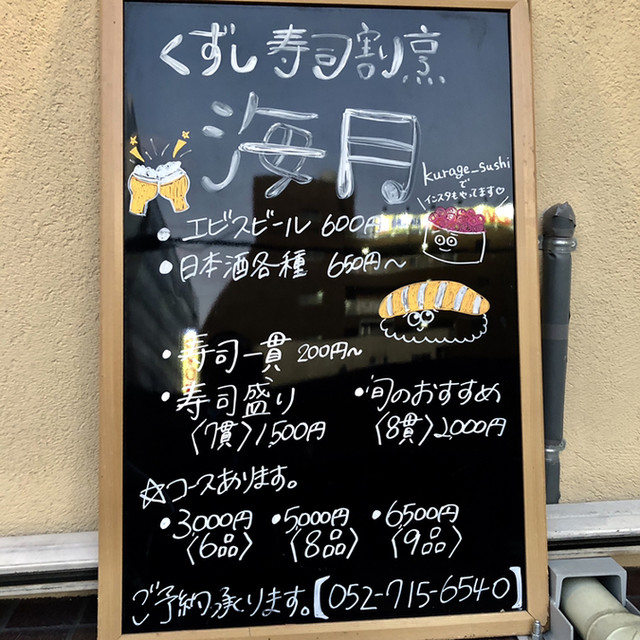 くずし寿司割烹
海月
kurage_sushi
で
インスタもやってます♡
●エビスビール 600円
●日本酒各種 650円～
・寿司一貫 200円～
・寿司盛り
〈7貫〉1,500円
・旬のおすすめ
〈8貫〉2,000円
☆コースあります。
・3,000円
〈6品〉
・5,000円
〈8品〉
・6,500円
〈9品〉
ご予約承ります。【052-715-6540】